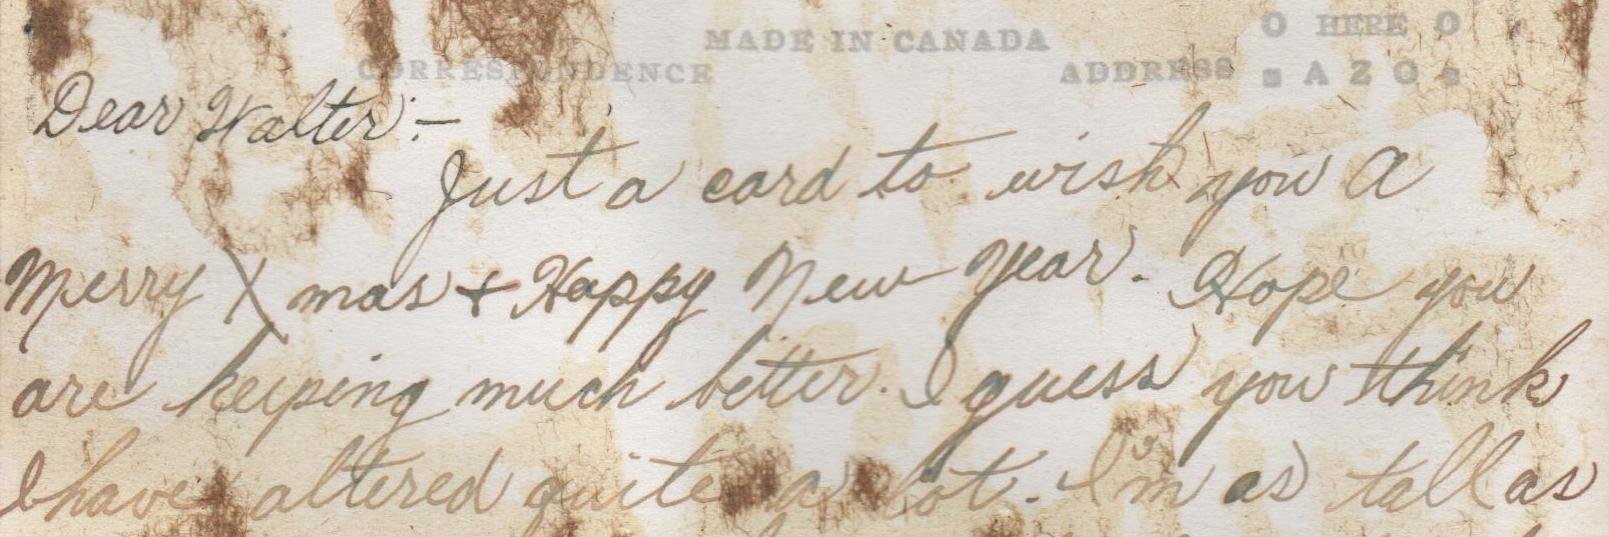 MADE IN CANADA
O HERE O
CORRESPONDENCE
ADDRESS
AZO
Dear Walter:—
Just a card to wish you a
Merry Xmas + Happy New Year. Hope you
are keeping much better. I guess you think
I have altered quite a lot. I'm as tall as